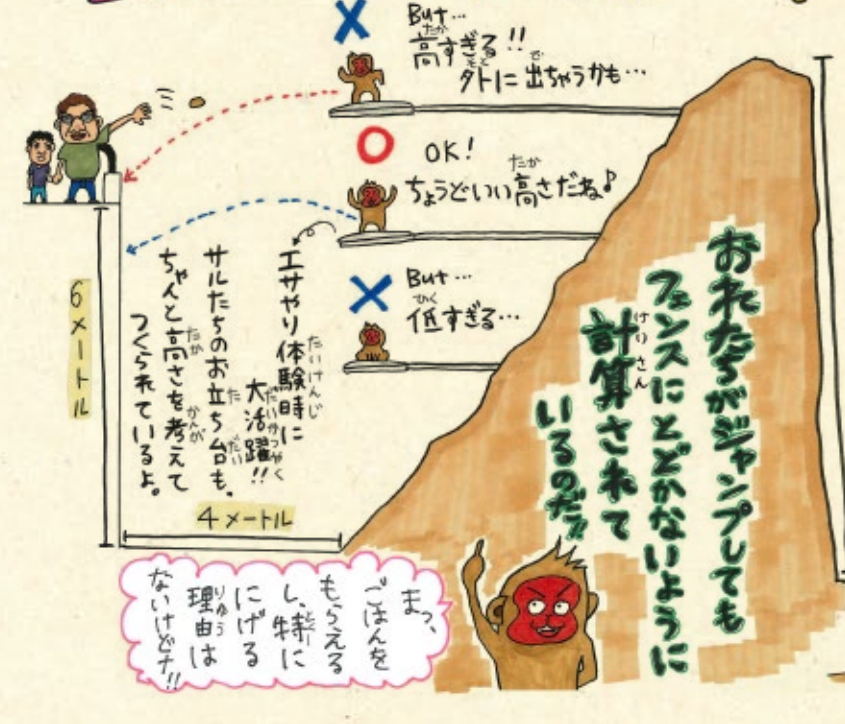 But…
高すぎる!!
外に出ちゃうかも…
OK!
ちょうどいい高さだね♪
But…
低すぎる…
エサやり体験時に
大活躍!!
サルたちのお立ち台も、
ちゃんと高さを考えて
つくられているよ。
6メートル
4メートル
おれたちがジャンプしても
フェンスにとどかないように
計算されて
いるのだ!!
まっ、
ごはんを
もらえる
し、特に
にげる
理由は
ないけどナ!!